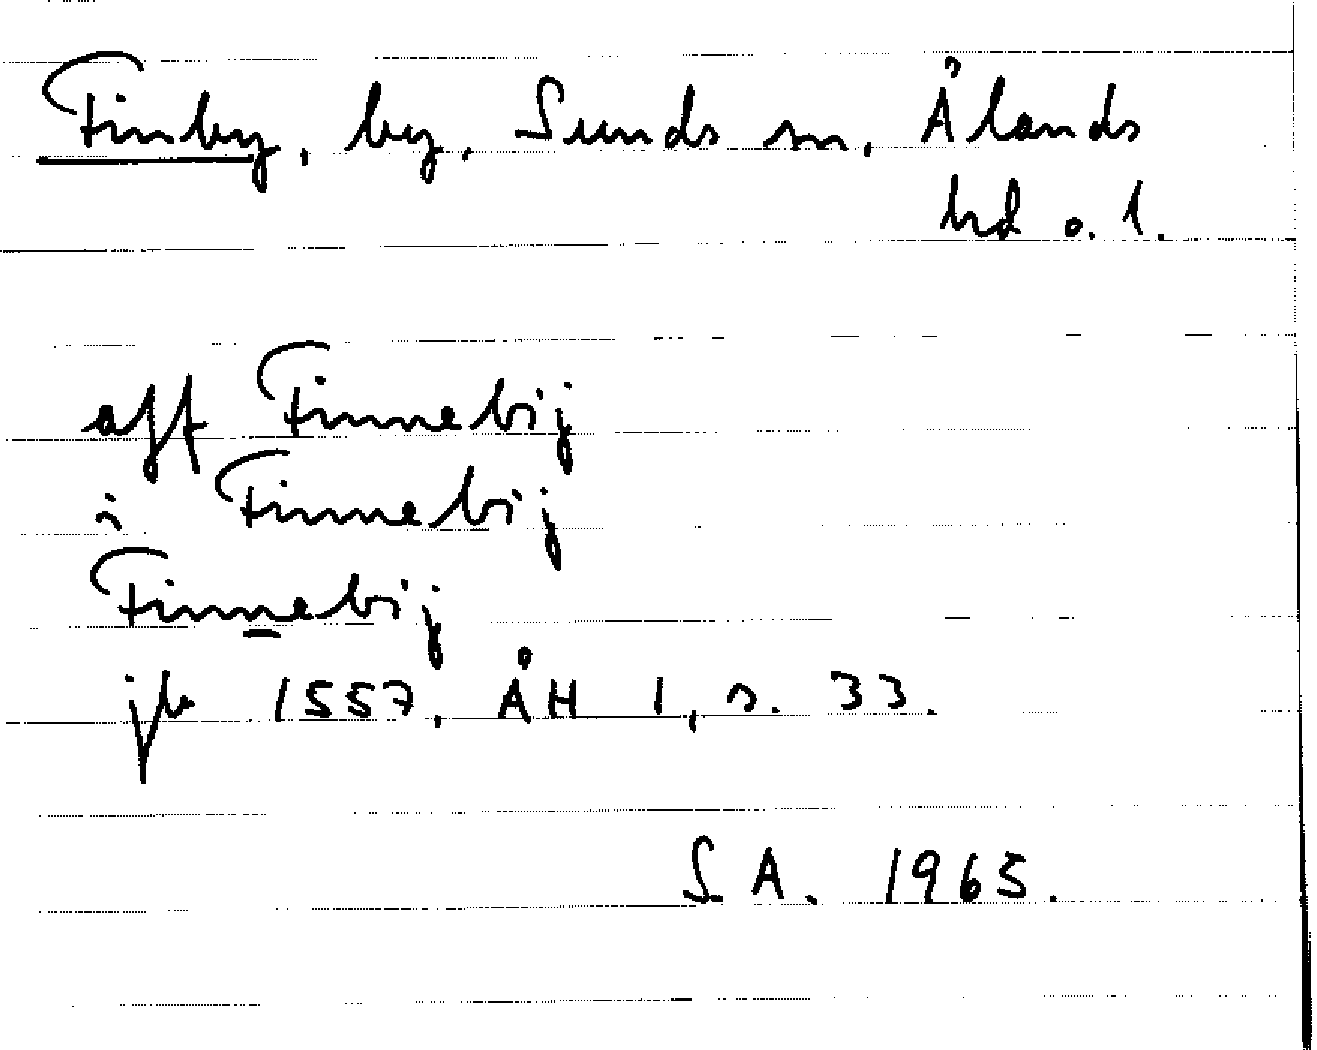 Finby, by, Sunds sn, Ålands
hd o. l.
aff Finnebij
i Finnebij
Finnebij
jb 1557, ÅH 1, s. 33.
S A. 1965.